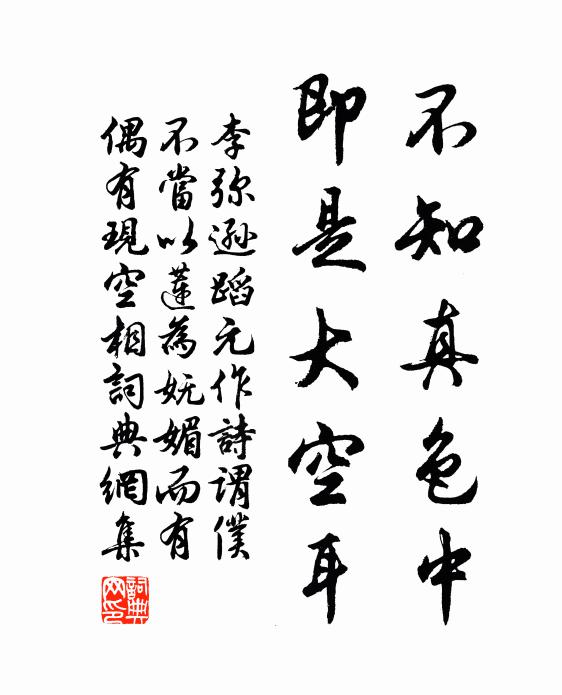 不知真色中
即是大空耳
李弥遜蹈元作詩謂僕
不當以蓮為妩媚而有
偶有現空相詞典網集
詞典網印